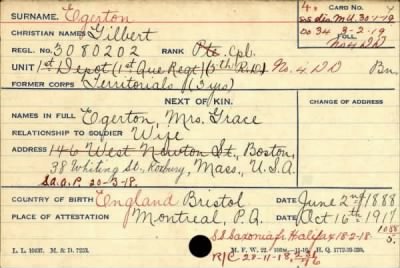 SURNAME. Egerton CARD NO. 4
CHRISTIAN NAMES Gilbert S.O.S. dis. M.U. 30-1-19
REGL. NO. 3080202 RANK Pte. Cpl. D.O. 34 3-2-19
UNIT 1st Depot (1st Que Regt) No. 4 D D Bn.
No 4 DD
FORMER CORPS Territorials (3 yrs)
NEXT OF KIN. CHANGE OF ADDRESS
NAMES IN FULL Egerton, Mrs. Grace
RELATIONSHIP TO SOLDIER Wife
ADDRESS 146 West Newton St., Boston,
38 Whiting St., Roxbury, Mass., U.S.A.
S.a.O.P. 20-3-18.
COUNTRY OF BIRTH England Bristol DATE June 2nd 1888
PLACE OF ATTESTATION Montreal, P.Q. DATE Oct 16th 1917
S.S. Saxonia fr Halifax 18-2-18
L. L. 19037. M. & D. 7233. R/C 23-11-18